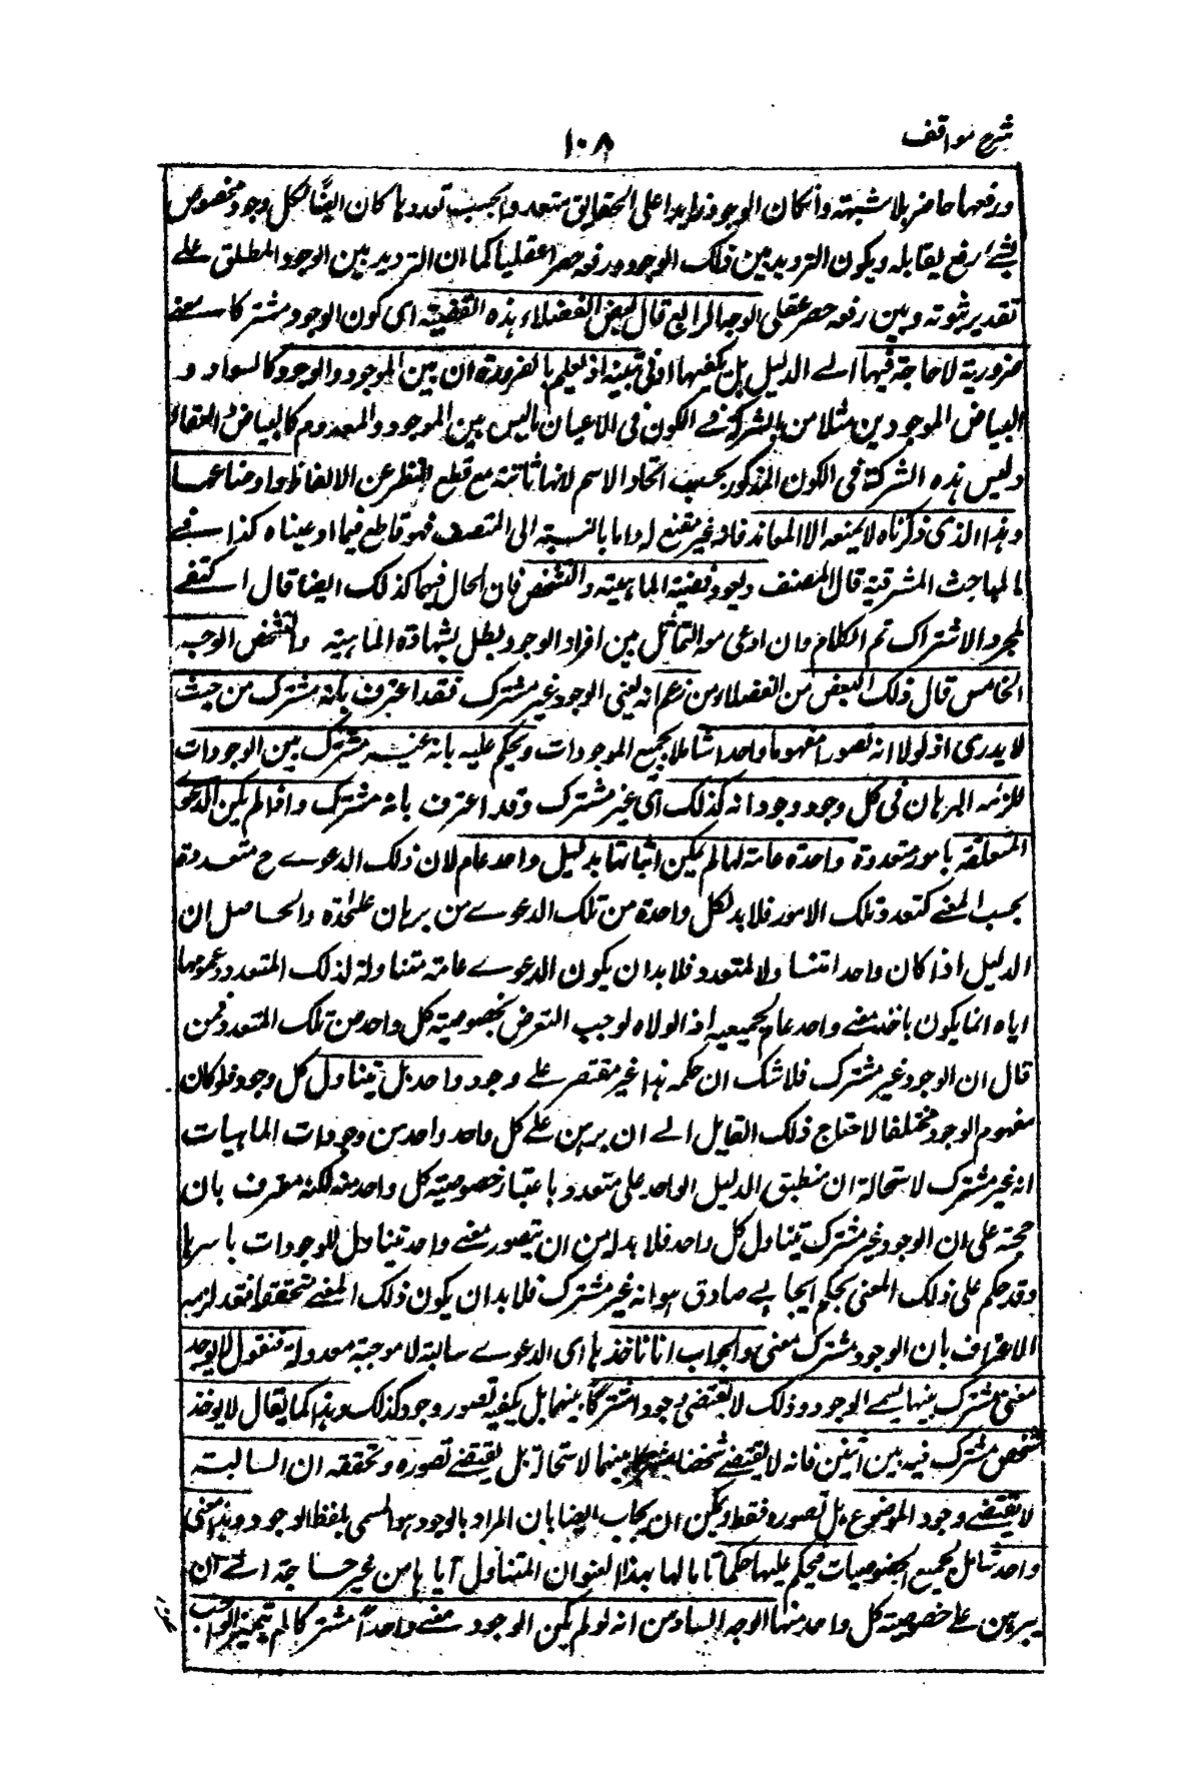 شرح مواقف
١٠٨
ورفعها حاضر بلا شبهته وان كان الوجود زايدا على الحقايق متعددا بحسب تعددها كان ايضا لكل وجود مخصوص
بشئ رفع يقابله ويكون الترديد بين ذلك الوجود ورفعه حصرا عقليا كما ان الترديد بين الوجود المطلق على
تقدير ثبوته وبين رفعه حصر عقلى الوجه الرابع قال بعض الفضلاء هذه القضية اى كون الوجود مشتركا معنى
ضرورية لا حاجة فيها الى الدليل بل يكفيها ادنى تنبيه اذ نعلم بالضرورة ان بين الموجود والموجود كالسواد و
البياض الموجودين مثلا من الشركة فى الكون فى الاعيان ما ليس بين الموجود والمعدوم كالبياض والعنقاء
وليس هذه الشركة فى الكون المذكور بحسب اتحاد الاسم لانها ثابتة مع قطع النظر عن الالفاظ واوضاعها
وهذا الذى ذكرناه لا يمنعه الا المعاند فانه غير مقنع له واما بالنسبة الى المنصف فهو قاطع فيما ادعيناه كذا فى
المباحث المشرقية قال المصنف ويعود قضية الماهية والتشخص فان الحال فيهما كذلك ايضا قال اكتفى
بمجرد الاشتراك تم الكلام وان ادعى معه التماثل بين افراد الوجود بطل بشهادة الماهية والتشخص الوجه
الخامس قال ذلك البعض من الفضلاء ومن زعم انه يعنى الوجود غير مشترك فقد اعترف بانه مشترك من حيث
لا يدرى اذ لولا انه تصور مفهوما واحدا شاملا لجميع الموجودات ويحكم عليه بانه غير مشترك بين الوجودات
للزمه البرهان فى كل وجود وجود انه كذلك اى غير مشترك وقد اعترف بانه مشترك واذا لم يكن الدعوى
المتعلقة بامور متعددة واحدة عامة لها لم يمكن اثباتها بدليل واحد عام لان ذلك الدعوى ح متعددة
بحسب المعنى كتعدد تلك الامور فلا بد لكل واحدة من تلك الدعوى من برهان علحدة والحاصل ان
الدليل اذا كان واحدا متناولا لمتعدد فلا بد ان يكون الدعوى عامة متناولة لذلك المتعدد وعمومها
اياه انما يكون باخذ معنى واحد عام لجميعه اذ لولاه لوجب التعرض لخصوصية كل واحد من تلك المتعدد فمن
قال ان الوجود غير مشترك فلا شك ان حكمه هذا غير مقتصر على وجود واحد بل يتناول كل وجود فلو كان
مفهوم الوجود مختلفا لاحتاج ذلك القايل الى ان يبرهن على كل واحد واحد من وجودات الماهيات
انه غير مشترك لاستحالة ان ينطبق الدليل الواحد على متعدد باعتبار خصوصية كل واحد منه لكنه معترف بان
حجته على ان الوجود غير مشترك تتناول كل واحد فلا بد له من ان يتصور معنى واحد يتناول للوجودات باسرها
وقد حكم على ذلك المعنى بحكم ايجابى صادق هو انه غير مشترك فلا بد ان يكون ذلك المعنى متحققا فقد لزمه
الاعتراف بان الوجود مشترك معنى والجواب انا ناخذها اى الدعوى سالبة لا موجبة معدولة فنقول لا يوجد
معنى مشترك بينها يسمى الوجود وذلك لا يقتضى وجودا مشتركا بينهما بل يكفيه تصور وجود كذلك وهذا كما يقال لا يوجد
شخص مشترك فيه بين اثنين فانه لا يقتضى شخصا مشتركا بينهما لاستحالة بل يقتضى تصوره وتحققه ان السالبة
لا تقتضى وجود الموضوع بل تصوره فقط ويمكن ان يجاب ايضا بان المراد بالوجود هو المسمى بلفظ الوجود وهذا معنى
واحد شامل لجميع الخصوصيات فيحكم عليها حكما متناولا لها بهذا العنوان المتناول اياها من غير حاجة الى ان
يبرهن على خصوصية كل واحد منها الوجه السادس انه لو لم يكن الوجود معنى واحدا مشتركا لم يتميز الواجب